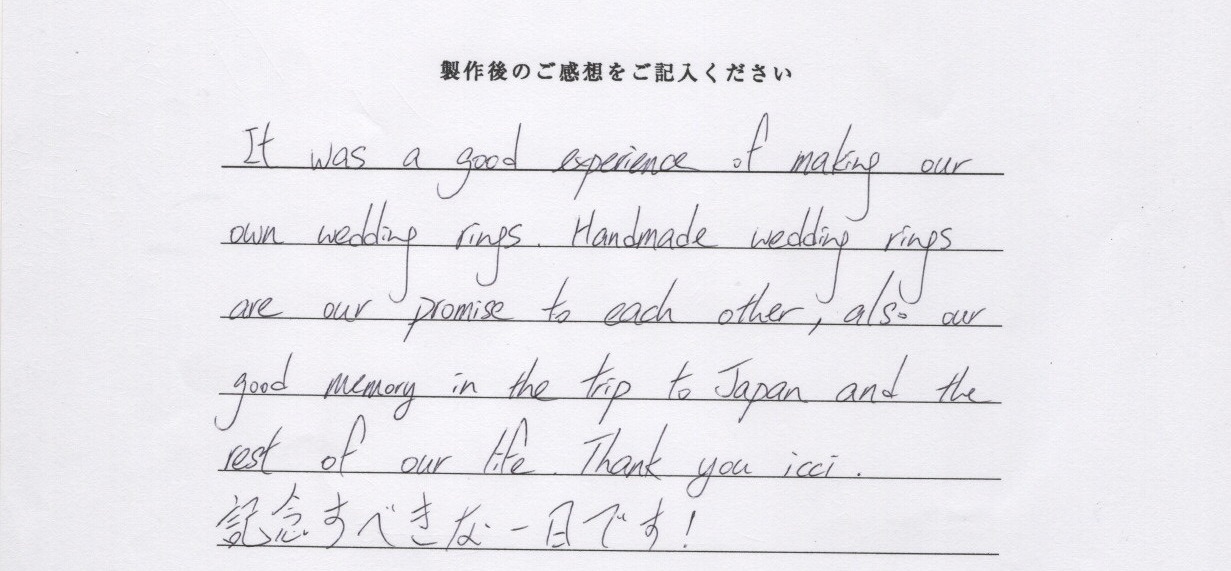 製作後のご感想をご記入ください
It was a good experience of making our
own wedding rings. Handmade wedding rings
are our promise to each other, also our
good memory in the trip to Japan and the
rest of our life. Thank you icci.
記念すべきな一日です!